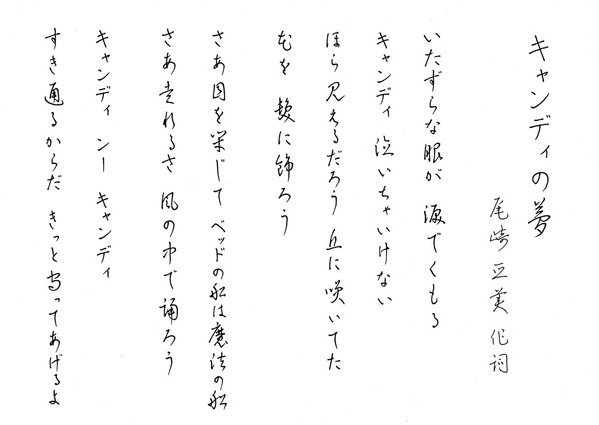 キャンディの夢
尾崎亜美 作詞
いたずらな眼が 涙でくもる
キャンディ 泣いちゃいけない
ほら見えるだろう 丘に咲いてた
花を 髪に飾ろう
さあ目を閉じて ベッドの船は魔法の船
さあ走れるさ 風の中で踊ろう
キャンディ ンー キャンディ
すき通るからだ きっと守ってあげるよ